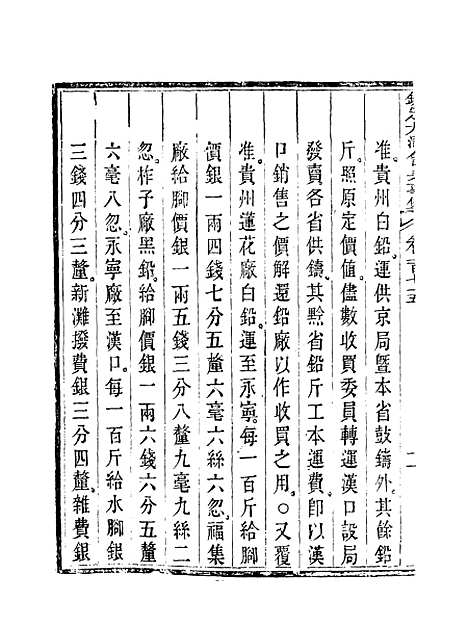 欽定大清會典事例　卷二百七十五　二
准貴州白鉛運供京局暨本省鼓鑄外其餘鉛
斤照原定價值儘數收買委員轉運漢口設局
發賣各省供鑄其黔省鉛斤工本運費卽以漢
口銷售之價解還鉛廠以作收買之用○又覆
准貴州蓮花廠白鉛運至永寧每一百斤給腳
價銀一兩四錢七分五釐六毫六絲六忽福集
廠給腳價銀一兩五錢三分八釐九毫九絲二
忽柞子廠黑鉛給腳價銀一兩六錢六分五釐
六毫八忽永寧廠至漢口每一百斤給水腳銀
三錢四分三釐新灘撥費銀三分四釐雜費銀